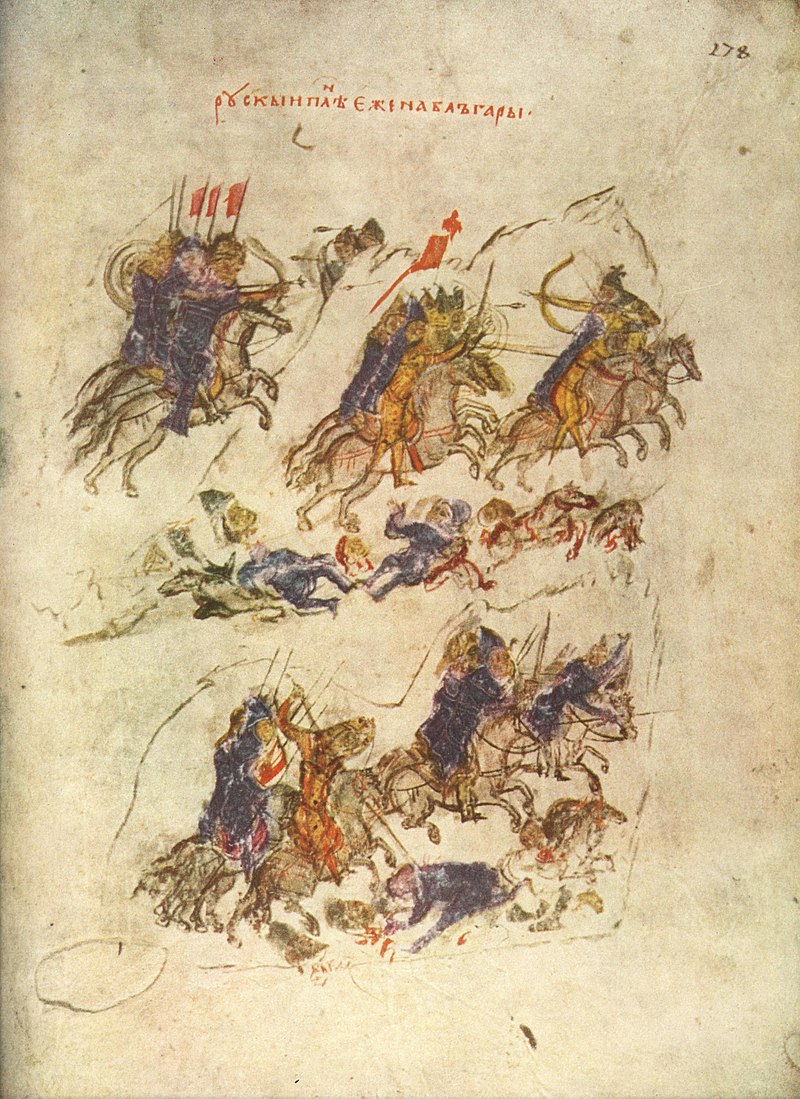 278
рꙋскыи плѣⷩ҇ еже на блъгары·